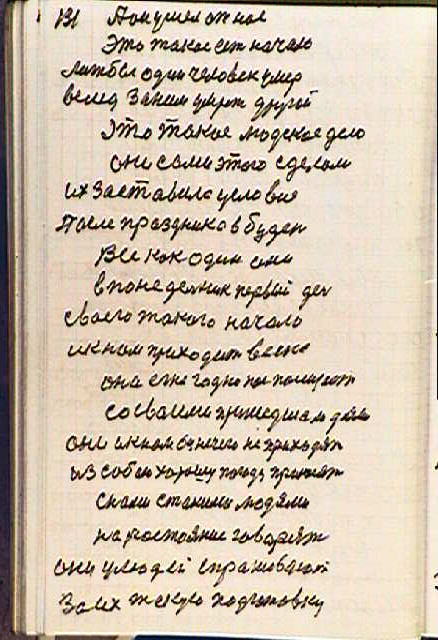 131 Пон умел от нас
Это такое ест начало
лижбы один человек умер
вслед За ним умрет другой
Это такое людское дело
они сами этого сделали
их Заставило условия
После праздников будем
Все как один они
в понедельник первый ден
своего такого начало
и к нам приходит весна
она ежегодно
со своими пришедшам днем
они к нам бы ничего не приходят
из собою хорошу погоду приносят
с нами с такими людями
на растояние говорят
они у людей спрашивают
За их подготовку